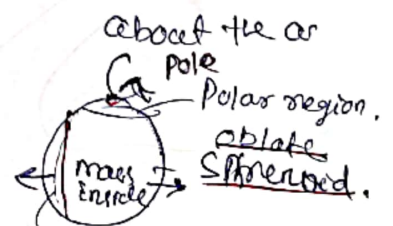 about the ar
pole
Polar region.
oblate
Spheroid.
mass
inside